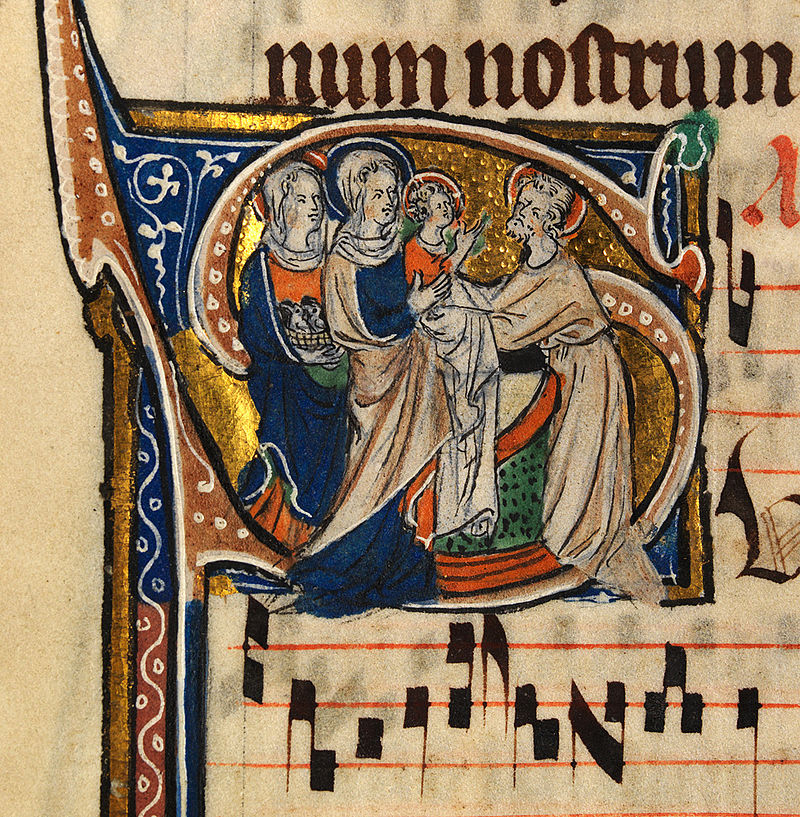 num noſtrum